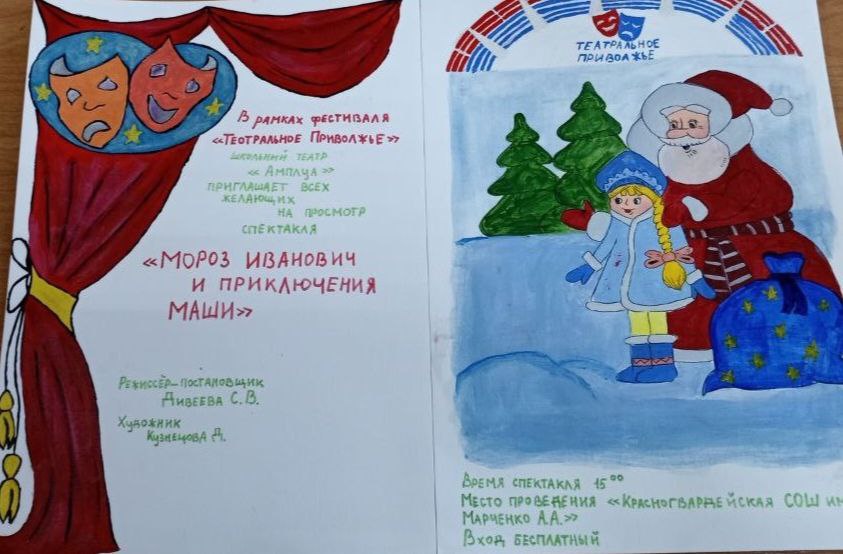 В рамках фестиваля
«Театральное Приволжье»
школьный театр
«Амплуа»
приглашает всех
желающих
на просмотр
спектакля
«Мороз Иванович
и приключения
Маши»
Режиссёр-постановщик
Дивеева С.В.
Художник
Кузнецова Д.
Театральное
Приволжье
Время спектакля 15⁰⁰
Место проведения «Красногвардейская СОШ им
Марченко А.А.»
Вход бесплатный